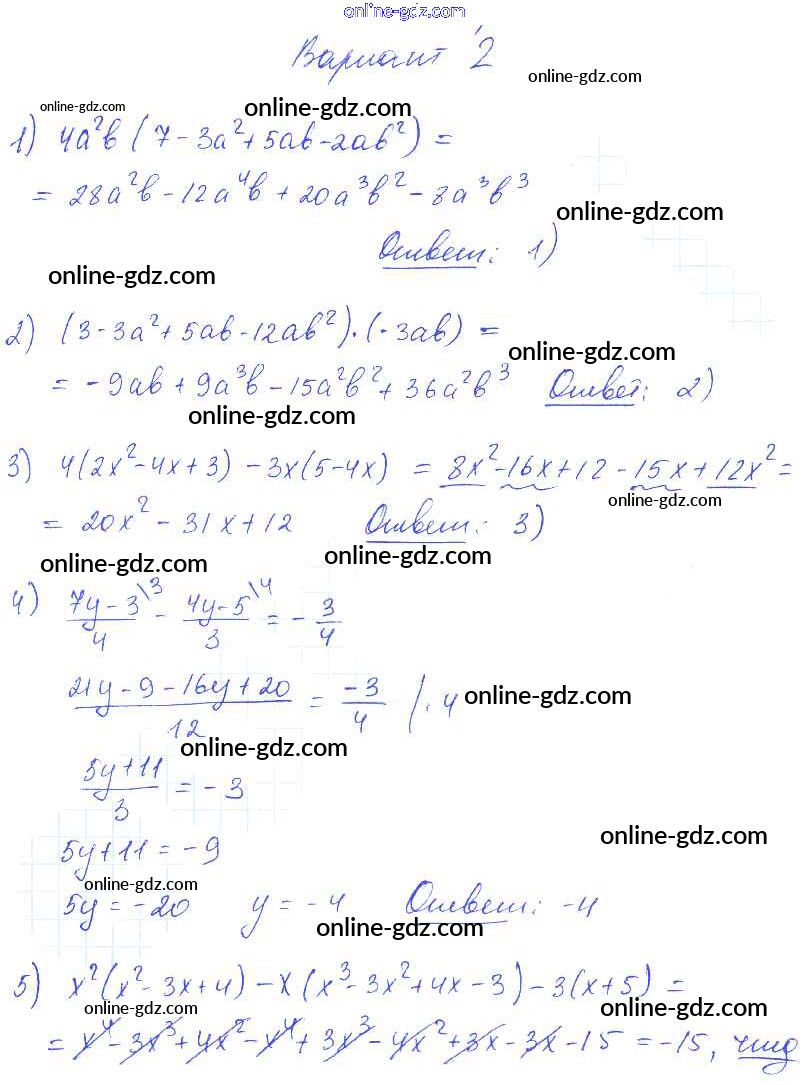 online-gdz.com
Вариант 2
online-gdz.com
online-gdz.com online-gdz.com
1) 4a²b (7 - 3a² + 5ab - 2ab²) =
= 28a²b - 12a⁴b + 20a³b² - 8a³b³
online-gdz.com
Ответ: 1)
online-gdz.com
2) (3 - 3a² + 5ab - 12ab²) · (-3ab) =
online-gdz.com
= -9ab + 9a³b - 15a²b² + 36a²b³ Ответ: 2)
online-gdz.com
3) 4(2x² - 4x + 3) - 3x(5 - 4x) = 8x² - 16x + 12 - 15x + 12x² =
online-gdz.com
= 20x² - 31x + 12 Ответ: 3)
online-gdz.com online-gdz.com
4) (7y - 3)/4 \3 - (4y - 5)/3 \4 = - 3/4
(21y - 9 - 16y + 20)/12 = -3/4 | · 4
online-gdz.com
online-gdz.com
(5y + 11)/3 = -3
online-gdz.com
5y + 11 = -9
online-gdz.com
5y = -20 y = -4 Ответ: -4
online-gdz.com
5) x²(x² - 3x + 4) - x(x³ - 3x² + 4x - 3) - 3(x + 5) =
online-gdz.com online-gdz.com
= x⁴ - 3x³ + 4x² - x⁴ + 3x³ - 4x² + 3x - 3x - 15 = -15, чтд